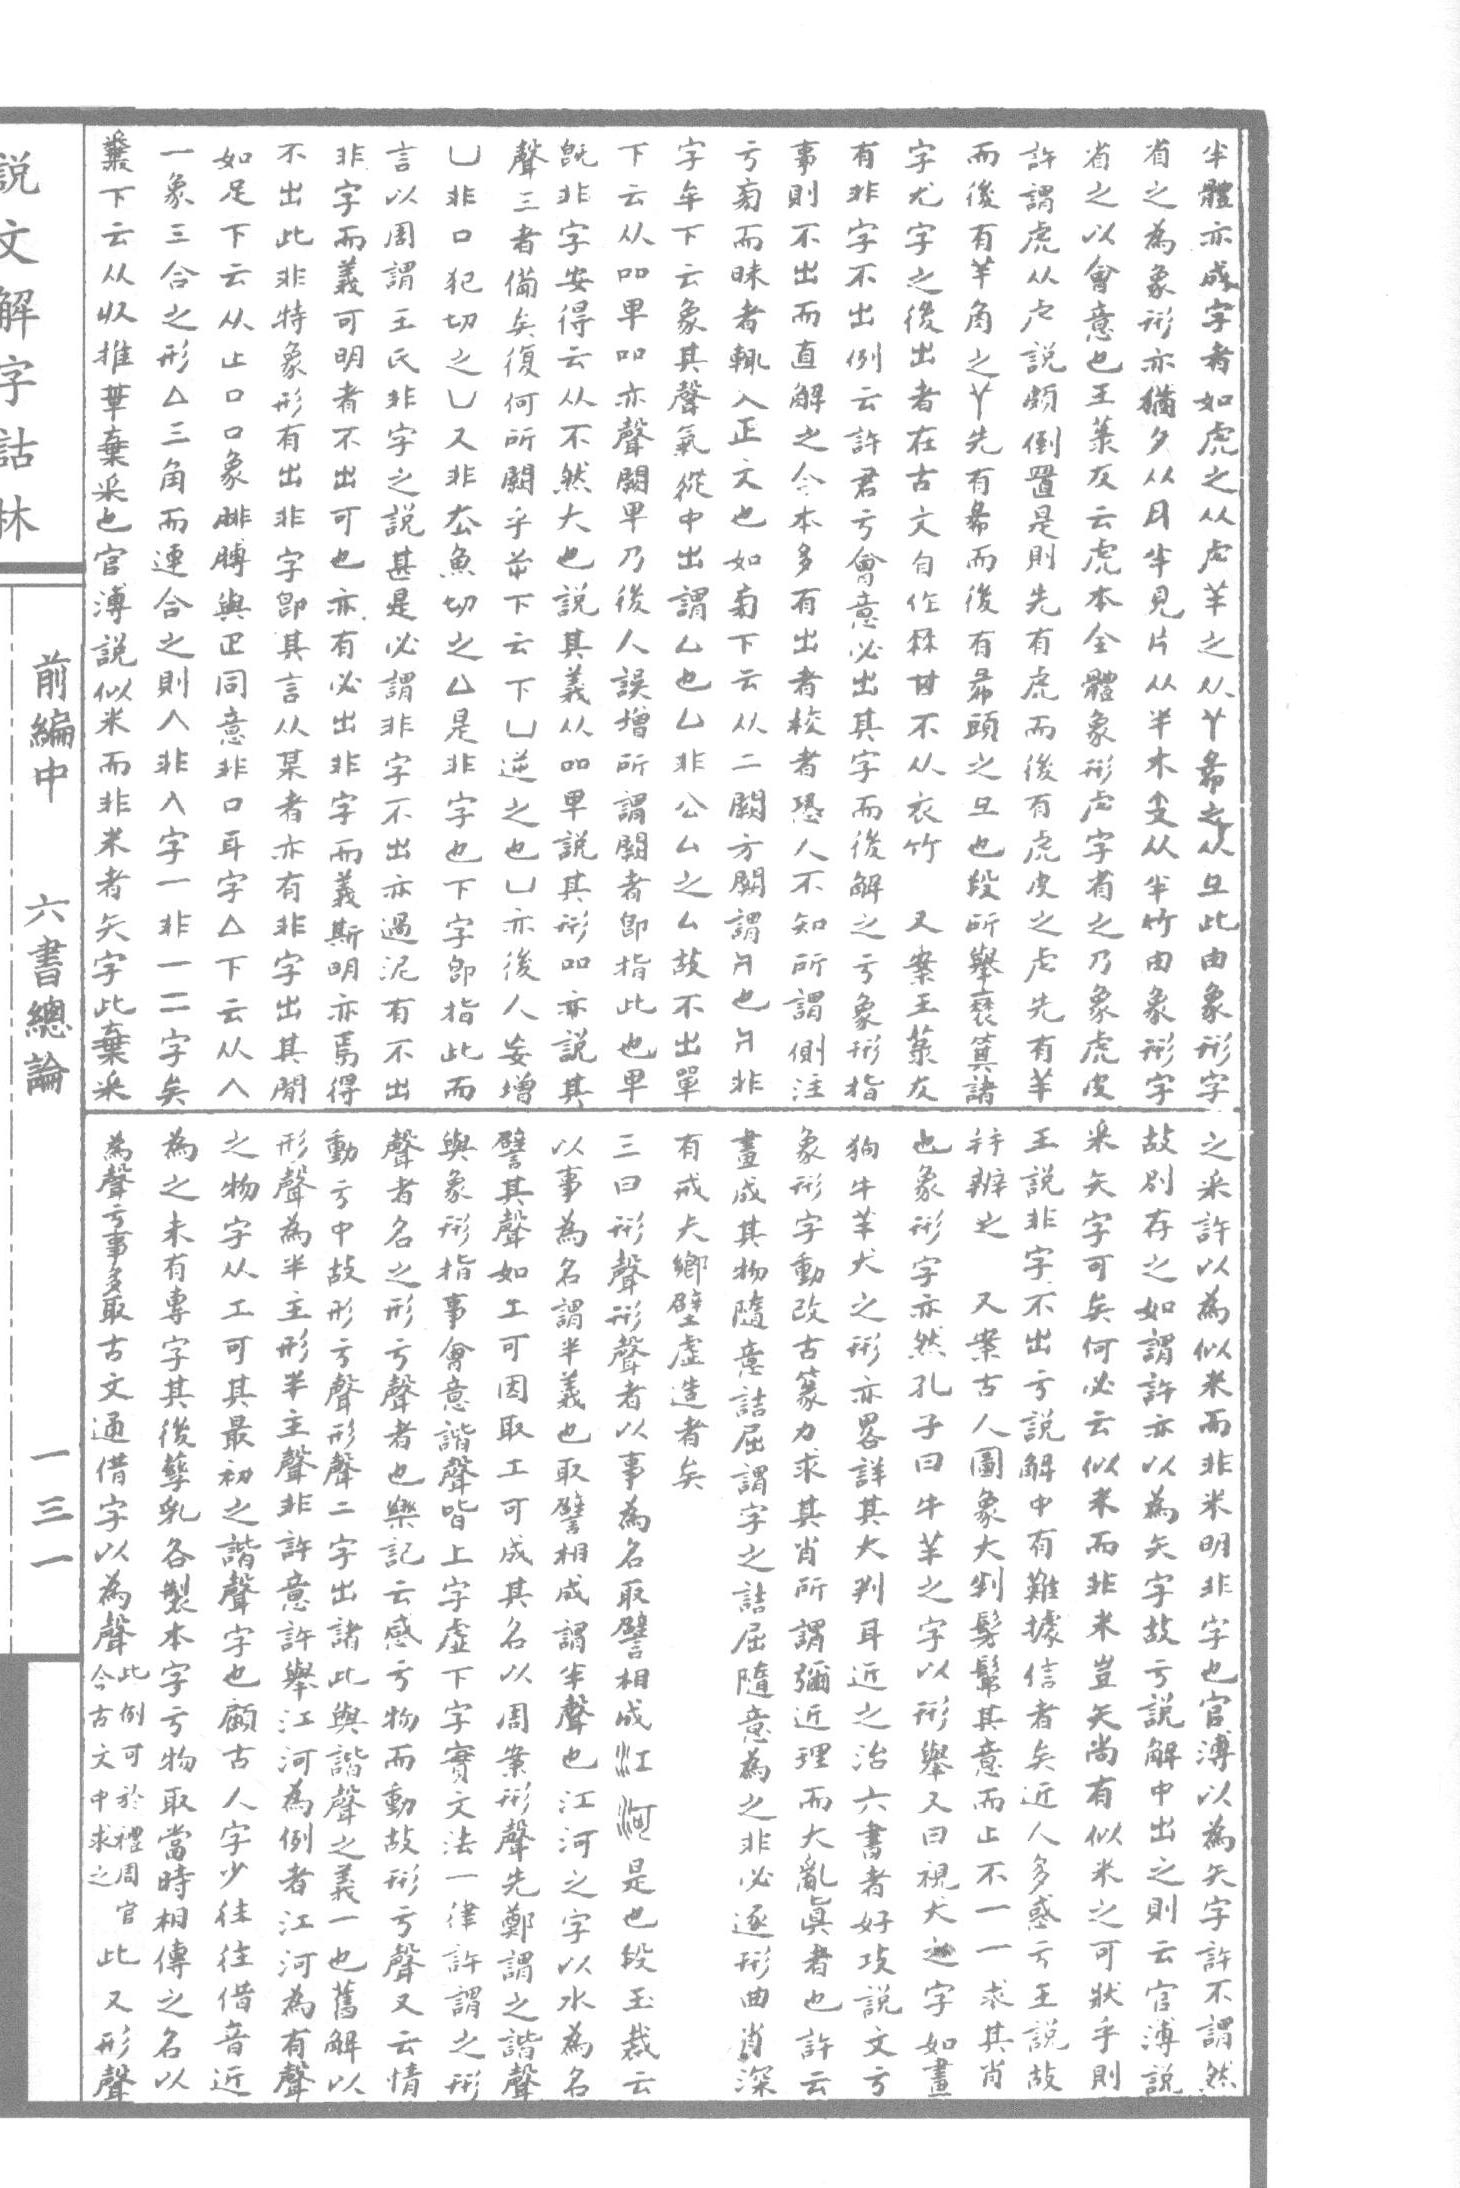 半體亦成字者如虎之从虍羊之从丫㣇之从彑此由象形字
省之為象形亦猶夕从月半見片从半木支从半竹由象形字
省之以會意也王菉友云虎本全體象形虍字省之乃象虎皮
許謂虎从虍說頗倒置是則先有虎而後有虎皮之虍先有羊
而後有羊角之丫先有㣇而後有㣇頭之彑也段所舉裘箕諸
字尤字之後出者在古文自作求𠀠不从衣竹 又案王菉友
有非字不出例云許君于會意必出其字而後解之于象形指
事則不出而直解之今本多有出者校者恐人不知所謂側注
于旁而昧者輒入正文也如旁下云从二闕方闕謂也非
字牟下云象其聲氣從中出謂厶也厶非公厶之厶故不出單
下云从吅甲吅亦聲闕甲乃後人誤增所謂闕者卽指此也甲
旣非字安得云从不然大也說其義从吅甲說其形吅亦說其
聲三者備矣復何所闕乎屰下云下凵逆之也凵亦後人妄增
凵非口犯切之凵又非厺魚切之凵是非字也下字卽指此而
言以周謂王氏非字之說甚是必謂非字不出亦過泥有不出
非字而義可明者不出可也亦有必出非字而義斯明亦焉得
不出此非特象形有出非字卽其言从某者亦有非字出其閒
如足下云从止口口象腓腨與疋同意非口耳字亼下云从入
一象三合之形亼三角而連合之則入非入字一非一二字矣
糞下云从収推𠦒棄釆也官溥說似米而非米者矢字此棄釆
之釆許以為似米而非米明非字也官溥以為矢字許不謂然
故別存之如謂許亦以為矢字故于說解中出之則云官溥說
釆矢字可矣何必云似米而非米豈矢尚有似米之可狀乎則
王說非字不出于說解中有難據信者矣近人多惑于王說故
幷辨之 又案古人圖象大判髣髴其意而止不一一求其肖
也象形字亦然孔子曰牛羊之字以形舉又曰視犬之字如畫
狗牛羊犬之形亦畧詳其大判耳近之治六書者好攻說文于
象形字動改古篆力求其肖所謂彌近理而大亂眞者也許云
畫成其物隨意詰屈謂字之詰屈隨意為之非必逐形曲肖深
有戒夫鄉壁虛造者矣
三曰形聲形聲者以事為名取譬相成江河是也段玉裁云
以事為名謂半義也取譬相成謂半聲也江河之字以水為名
譬其聲如工可因取工可成其名以周案形聲先鄭謂之諧聲
與象形指事會意諧聲皆上字虛下字實文法一律許謂之形
聲者名之形于聲者也樂記云感于物而動故形于聲又云情
動于中故形于聲形聲二字出諸此與諧聲之義一也舊解以
形聲為半主形半主聲非許意許舉江河為例者江河為有聲
之物字从工可其最初之諧聲字也顧古人字少往往借音近
為之未有專字其後孳乳各製本字于物取當時相傳之名以
為聲于事多取古文通借字以為聲此例可於禮周官今古文中求之此又形聲
說文解字詁林
前編中 六書總論 一三一